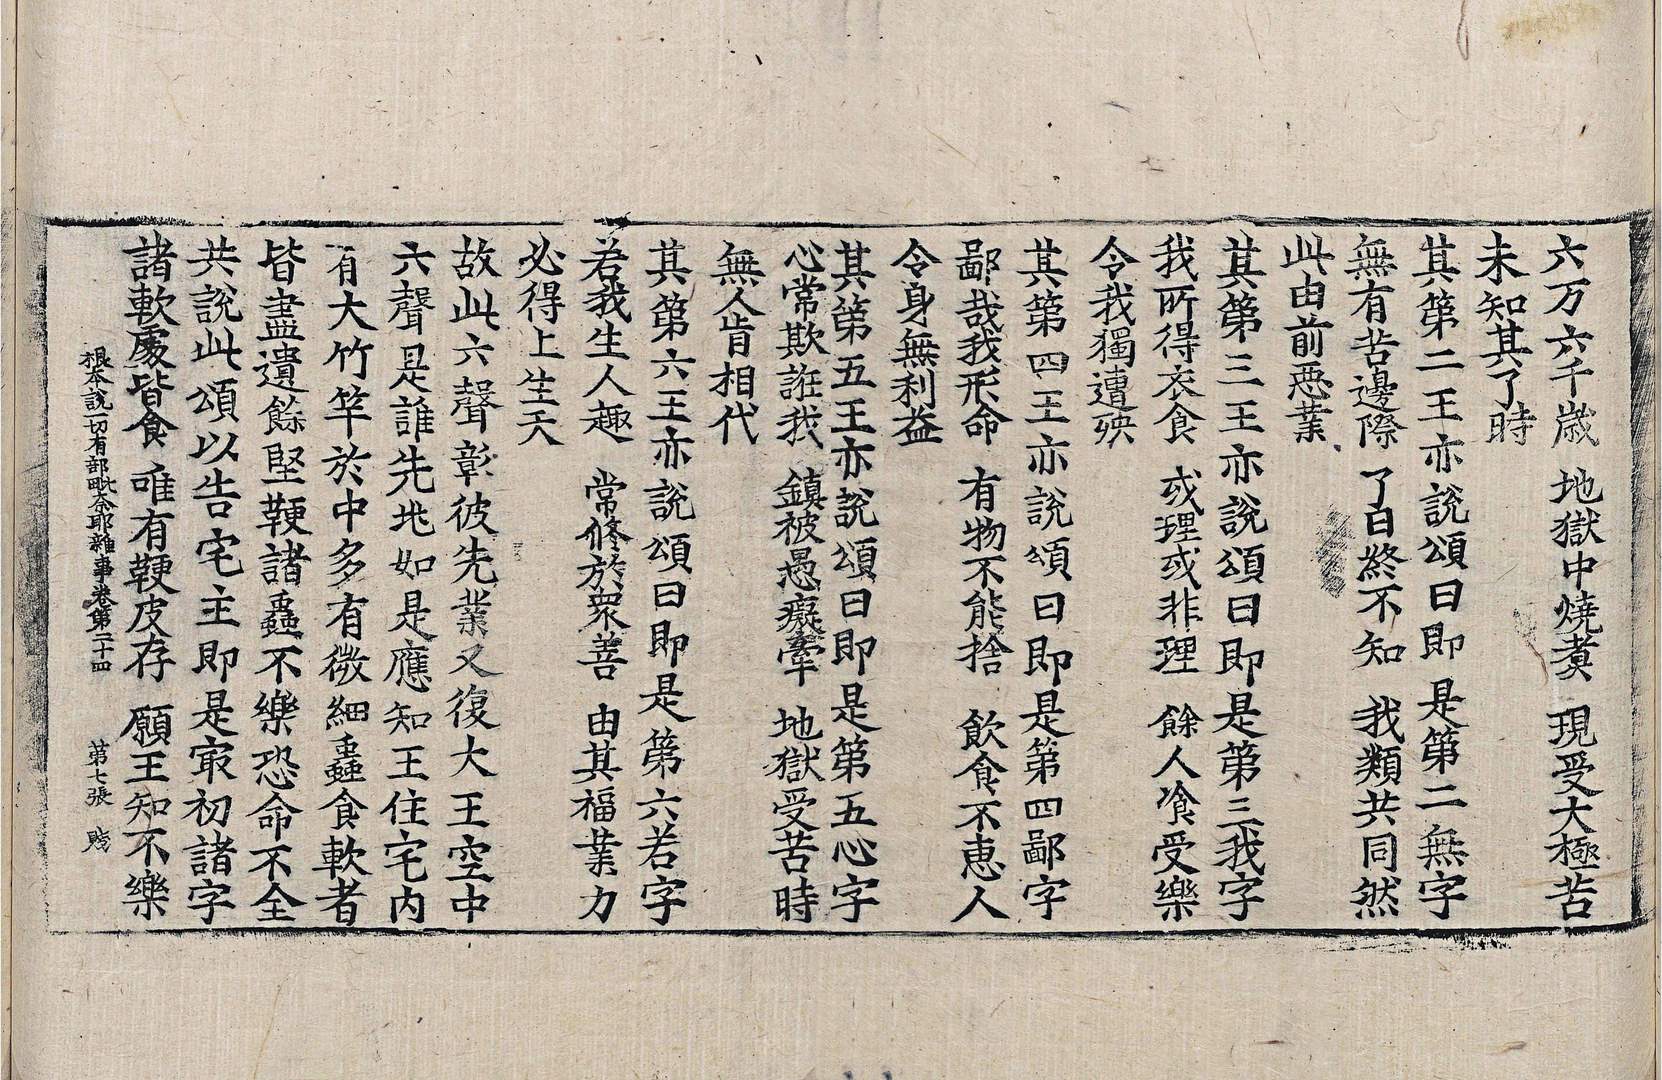 六万六千歲 地獄中燒煑 現受大極苦
未知其了時
其第二王亦說頌曰即是第二無字
無有苦邊際 了日終不知 我類共同然
此由前惡業
其第三王亦說頌曰即是第三我字
我所得衣食 或理或非理 餘人飡受樂
令我獨遭殃
其第四王亦說頌曰即是第四鄙字
鄙哉我形命 有物不能捨 飲食不惠人
令身無利益
其第五王亦說頌曰即是第五心字
心常欺誑我 鎮被愚癡牽 地獄受苦時
無人肯相代
其第六王亦說頌曰即是第六若字
若我生人趣 常修於衆善 由其福業力
必得上生天
故此六聲彰彼先業又復大王空中
六聲是誰先兆如是應知王住宅內
有大竹竿於中多有微細蟲食軟者
皆盡遺餘堅鞕諸蟲不樂恐命不全
共說此頌以告宅主即是冣初諸字
諸軟處皆食 唯有鞕皮存 願王知不樂
根本說一切有部毗奈耶雜事卷第二十四 第七張 賤